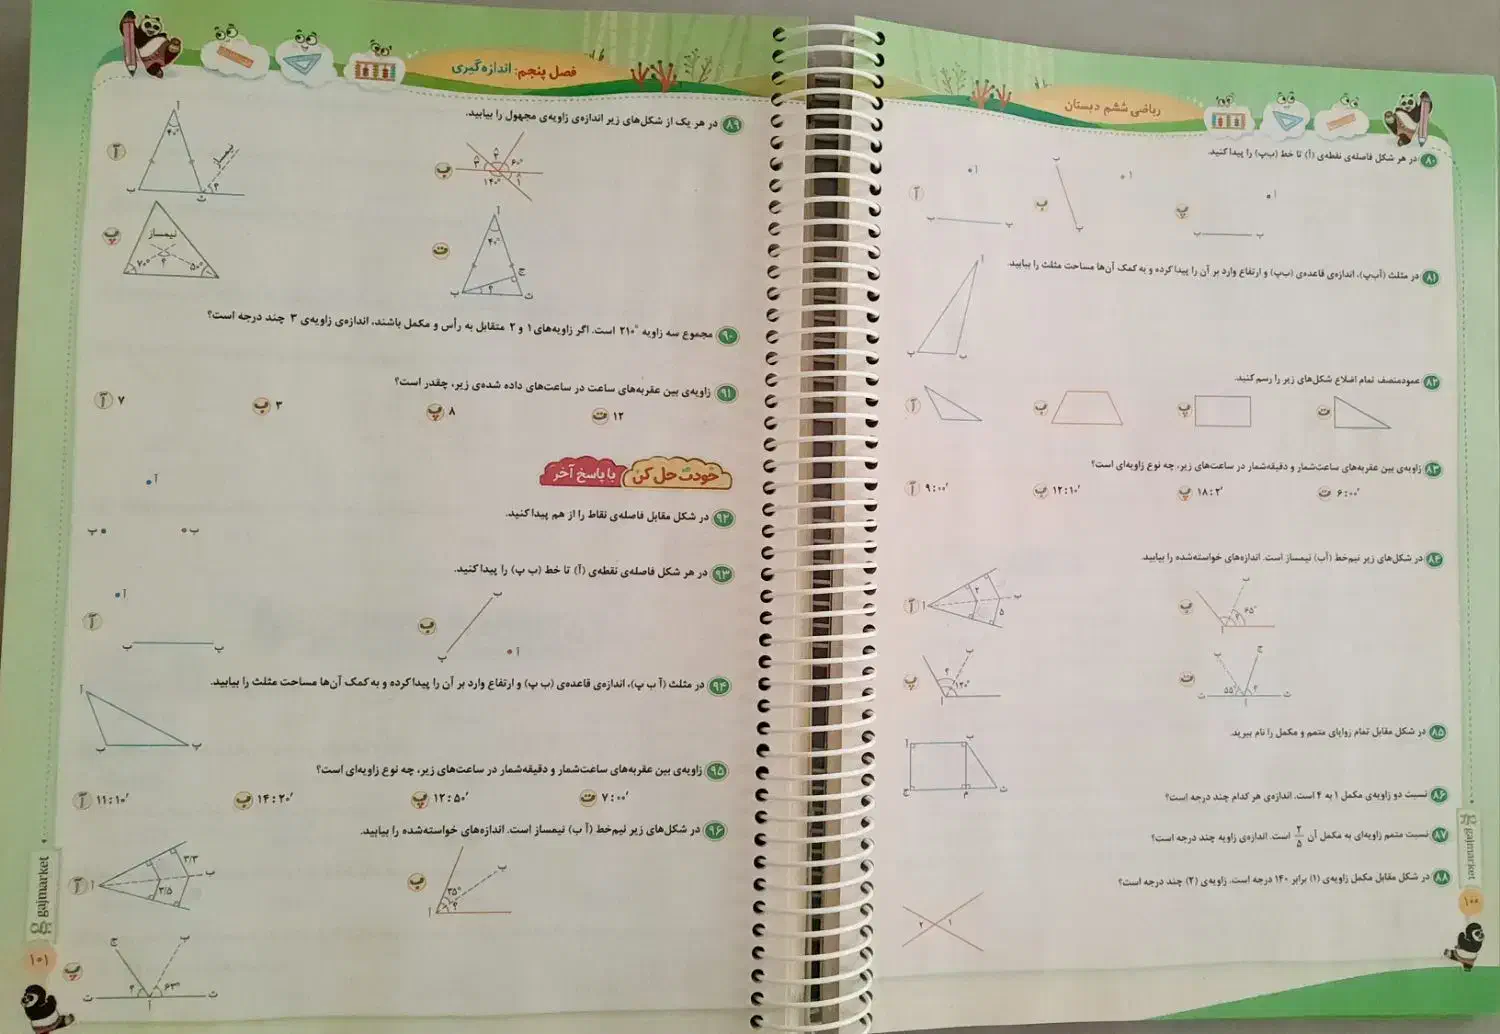 ریاضی ششم دبستان
۸۰ در هر شکل فاصله‌ی نقطه‌ی (آ) تا خط (ب‌پ) را پیدا کنید.
آ ب پ
۸۱ در مثلث (آب‌پ)، اندازه‌ی قاعده‌ی (ب‌پ) و ارتفاع وارد بر آن را پیدا کرده و به کمک آن‌ها مساحت مثلث را بیابید.
۸۲ عمودمنصف تمام اضلاع شکل‌های زیر را رسم کنید.
آ ب پ ت
۸۳ زاویه‌ی بین عقربه‌های ساعت‌شمار و دقیقه‌شمار در ساعت‌های زیر، چه نوع زاویه‌ای است؟
آ ۹:۰۰′ ب ۱۲:۱۰′ پ ۱۸:۲′ ت ۶:۰۰′
۸۴ در شکل‌های زیر نیم‌خط (آب) نیمساز است. اندازه‌های خواسته‌شده را بیابید.
آ ۲ ۵ ب
ب ۶۵° ؟ آ ب
پ ؟ ۱۲۰° آ ب
ت ۵۵° ؟ آ ب ج ت ث
۸۵ در شکل مقابل تمام زوایای متمم و مکمل را نام ببرید.
آ ب ج م ث
۸۶ نسبت دو زاویه‌ی مکمل ۱ به ۴ است. اندازه‌ی هر کدام چند درجه است؟
۸۷ نسبت متمم زاویه‌ای به مکمل آن ۲/۵ است. اندازه‌ی زاویه چند درجه است؟
۸۸ در شکل مقابل مکمل زاویه‌ی (۱) برابر ۱۴۰ درجه است. زاویه‌ی (۲) چند درجه است؟
۲ ۱
gajmarket
۱۰۰
فصل پنجم: اندازه‌گیری
۸۹ در هر یک از شکل‌های زیر اندازه‌ی زاویه‌ی مجهول را بیابید.
آ ۴۰° نیمساز ؟ آ ب ت
ب ۶۰° ۱۴۰° ۱ ۲ ۳
پ نیمساز ۷۰° ؟ ۵۰°
ت ۴۰° ؟ آ ب ت ج
۹۰ مجموع سه زاویه ۲۱۰° است. اگر زاویه‌های ۱ و ۲ متقابل به رأس و مکمل باشند، اندازه‌ی زاویه‌ی ۳ چند درجه است؟
۹۱ زاویه‌ی بین عقربه‌های ساعت در ساعت‌های داده شده‌ی زیر، چقدر است؟
آ ۷ ب ۳ پ ۸ ت ۱۲
خودت حل کن با پاسخ آخر
۹۲ در شکل مقابل فاصله‌ی نقاط را از هم پیدا کنید.
آ ب پ
۹۳ در هر شکل فاصله‌ی نقطه‌ی (آ) تا خط (ب پ) را پیدا کنید.
آ ب
۹۴ در مثلث (آ ب پ)، اندازه‌ی قاعده‌ی (ب پ) و ارتفاع وارد بر آن را پیدا کرده و به کمک آن‌ها مساحت مثلث را بیابید.
آ ب پ
۹۵ زاویه‌ی بین عقربه‌های ساعت‌شمار و دقیقه‌شمار در ساعت‌های زیر، چه نوع زاویه‌ای است؟
آ ۱۱:۱۰′ ب ۱۴:۲۰′ پ ۱۲:۵۰′ ت ۷:۰۰′
۹۶ در شکل‌های زیر نیم‌خط (آ ب) نیمساز است. اندازه‌های خواسته‌شده را بیابید.
آ ۳/۳ ۲/۵ ب
ب ۳۵° ؟ آ ب
پ ؟ ۶۳° آ ب ج ت ث
gajmarket
۱۰۱